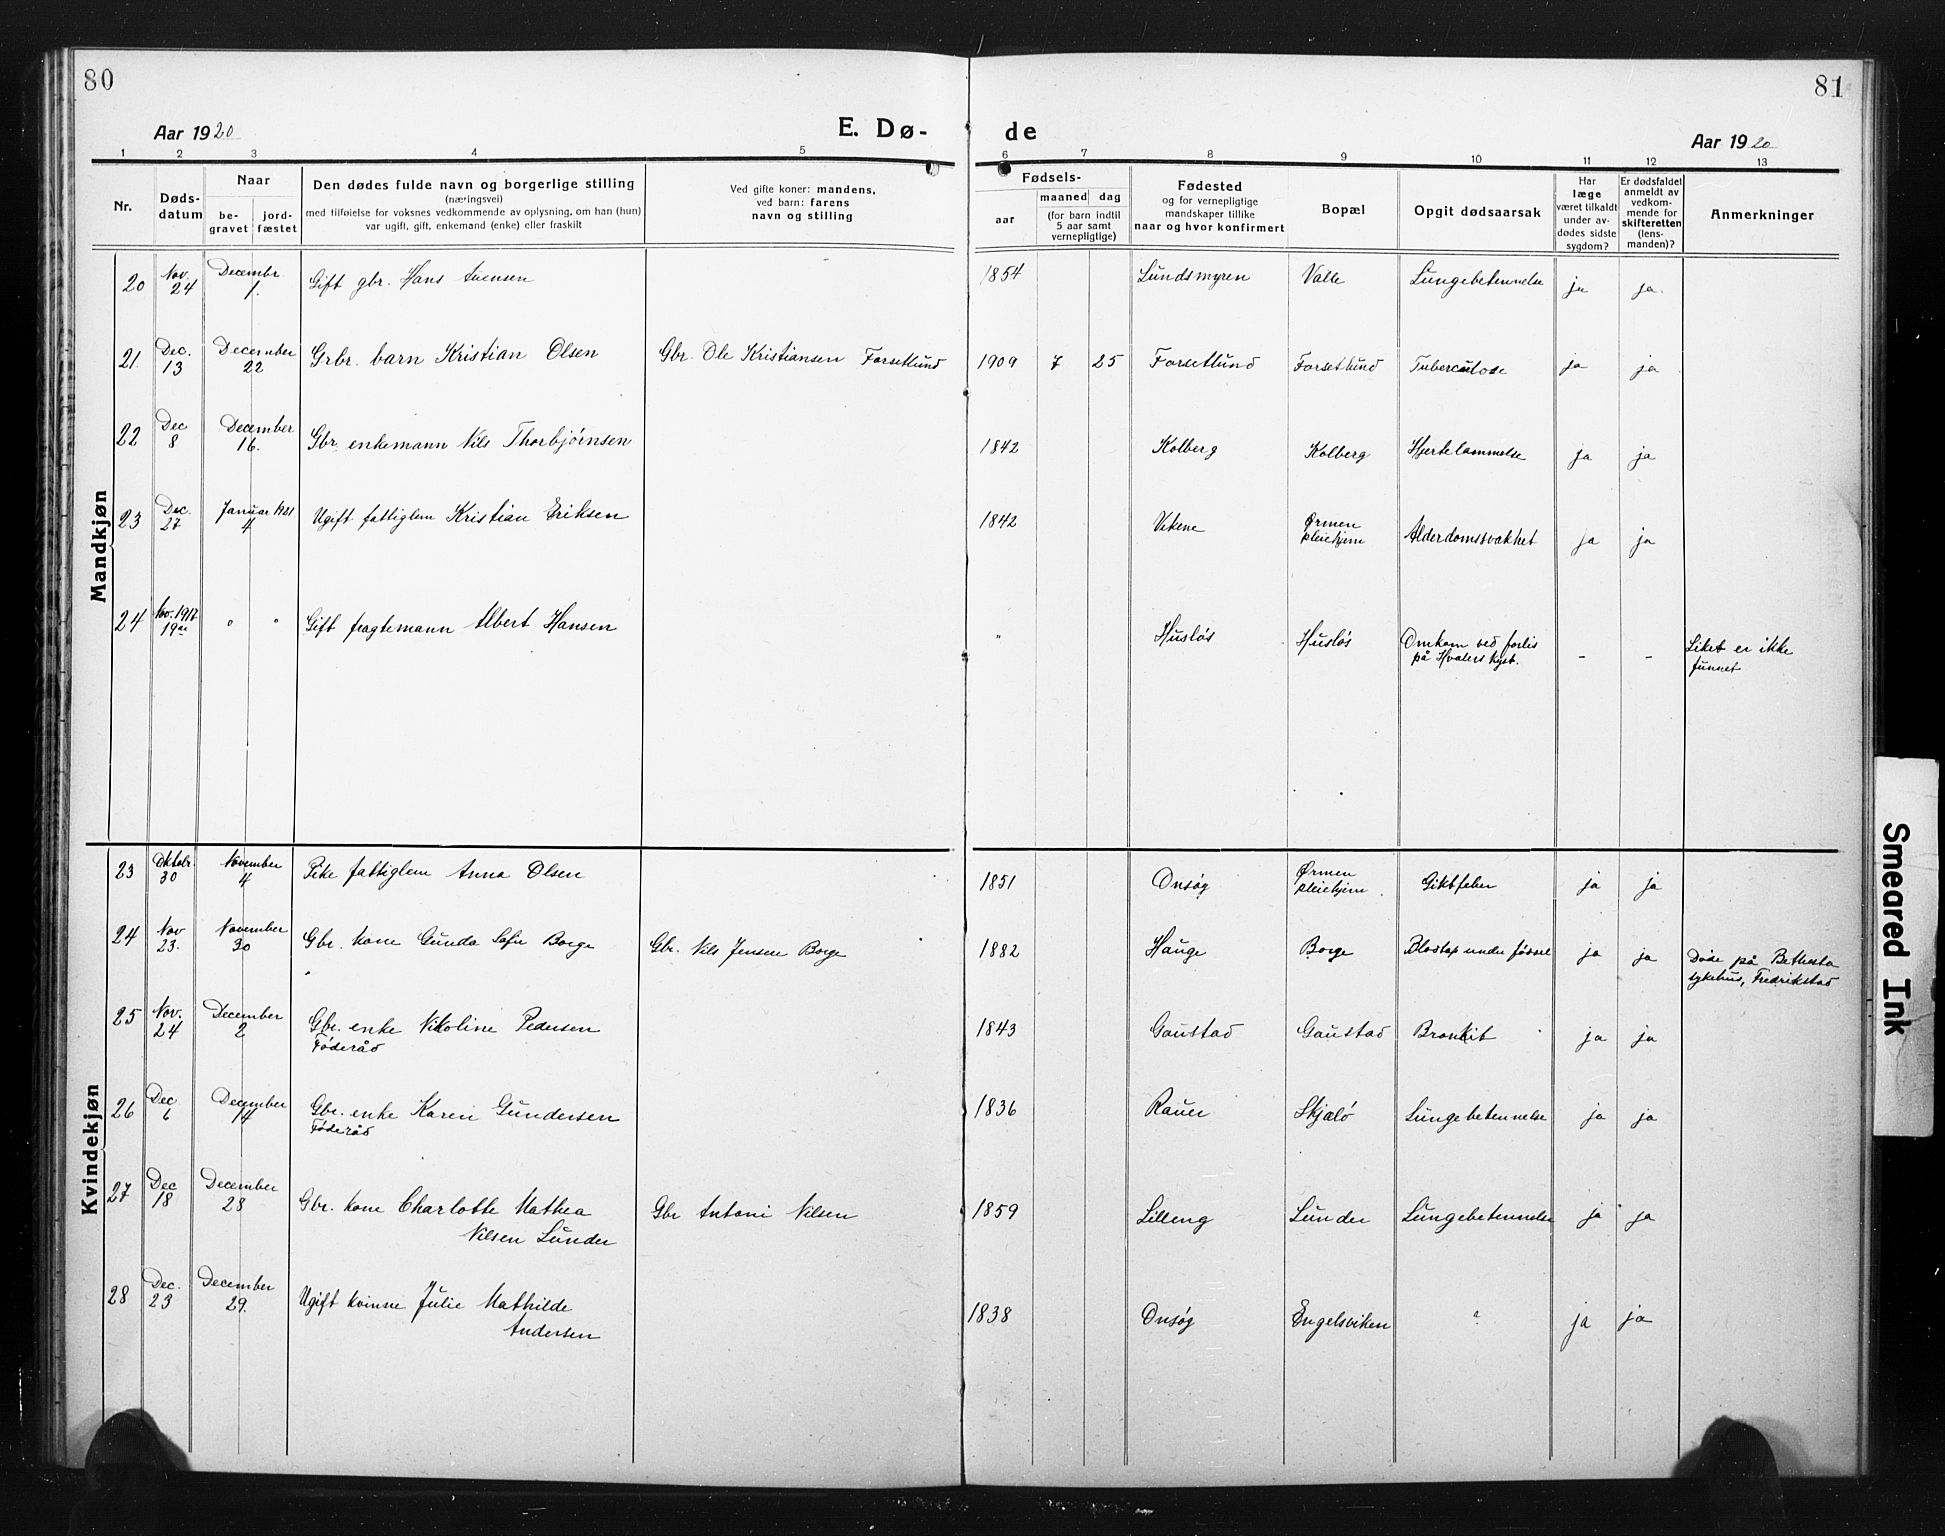 80
81
Aar 1920
E. Dø-
de
Aar 1920
1 2 3 4 5 6 7 8 9 10 11 12 13
Nr.
Døds-
datum
Naar
be-
gravet
jord-
fæstet
Den dødes fulde navn og borgerlige stilling
(næringsvei)
med tilføielse for voksnes vedkommende av oplysning, om han (hun)
var ugift, gift, enkemand (enke) eller fraskilt
Ved gifte koner: mandens,
ved barn: farens
navn og stilling
Fødsels-
aar
maaned dag
(for barn indtil
5 aar samt
vernepligtige)
Fødested
og for vernepligtige
mandskaper tillike
naar og hvor konfirmert
Bopæl
Opgit dødsaarsak
Har
læge
været tilkaldt
under av-
dødes sidste
sygdom?
Er dødsfaldet
anmeldt av
vedkom-
mende for
skifteretten
(lens-
manden)?
Anmerkninger
Mandkjøn
20 Nov. 24 Decembr. 1. Gift gbr. Hans Svensen 1854 Lundsmyren Valle Lungebetennelse ja ja.
21 Dec. 13 December 22 Grbr. barn Kristian Olsen Gbr. Ole Kristiansen Forsetlund 1909 7 25 Forsetlund Forsetlund Tuberculose ja ja
22 Dec 8 December 16. Gbr. enkemann Nils Thorbjørnsen 1842 Kolberg Kolberg Hjertelammelse ja ja
23 Dec. 27 Januar 1921 4 Ugift fattiglem Kristian Eriksen 1842 Vikene Ørmen pleiehjem Alderdomssvakhet ja ja
24 Nov. 1917 19de " " Gift fragtemann Albert Hansen " Husløs Husløs Omkom ved forlis
på Hvalers kyst. - - Liket er ikke
funnet
Kvindekjøn
23 Oktobr. 30 November 4 Pike fattiglem Anna Olsen 1851 Onsøg Ørmen pleiehjem Giktfeber ja ja
24 Nov 23. November 30 Gbr. kone Gunda Sofie Borge Gbr. Nils Jensen Borge 1882 Hauge Borge Blodtap under fødsel ja ja Døde på Bethesta
sykehus, Fredrikstad
25 Nov. 24 December 2 Gbr. enke Nikoline Pedersen
Føderåd 1843 Gaustad Gaustad Bronkit ja ja
26 Dec 6 December 14 Gbr. enke Karen Gundersen
Føderåd 1836 Rauer Skjælø Lungebetennelse ja ja
27 Dec 18 December 28 Gbr. kone Charlotte Mathea
Nilsen Lunder Gbr Antoni Nilsen 1859 Lilleng Lunder Lungebetennelse ja ja
28 Dec. 23 December 29. Ugift kvinne Julie Mathilde
Andersen 1838 Onsøg Engelsviken ? ja ja
Smeared Ink